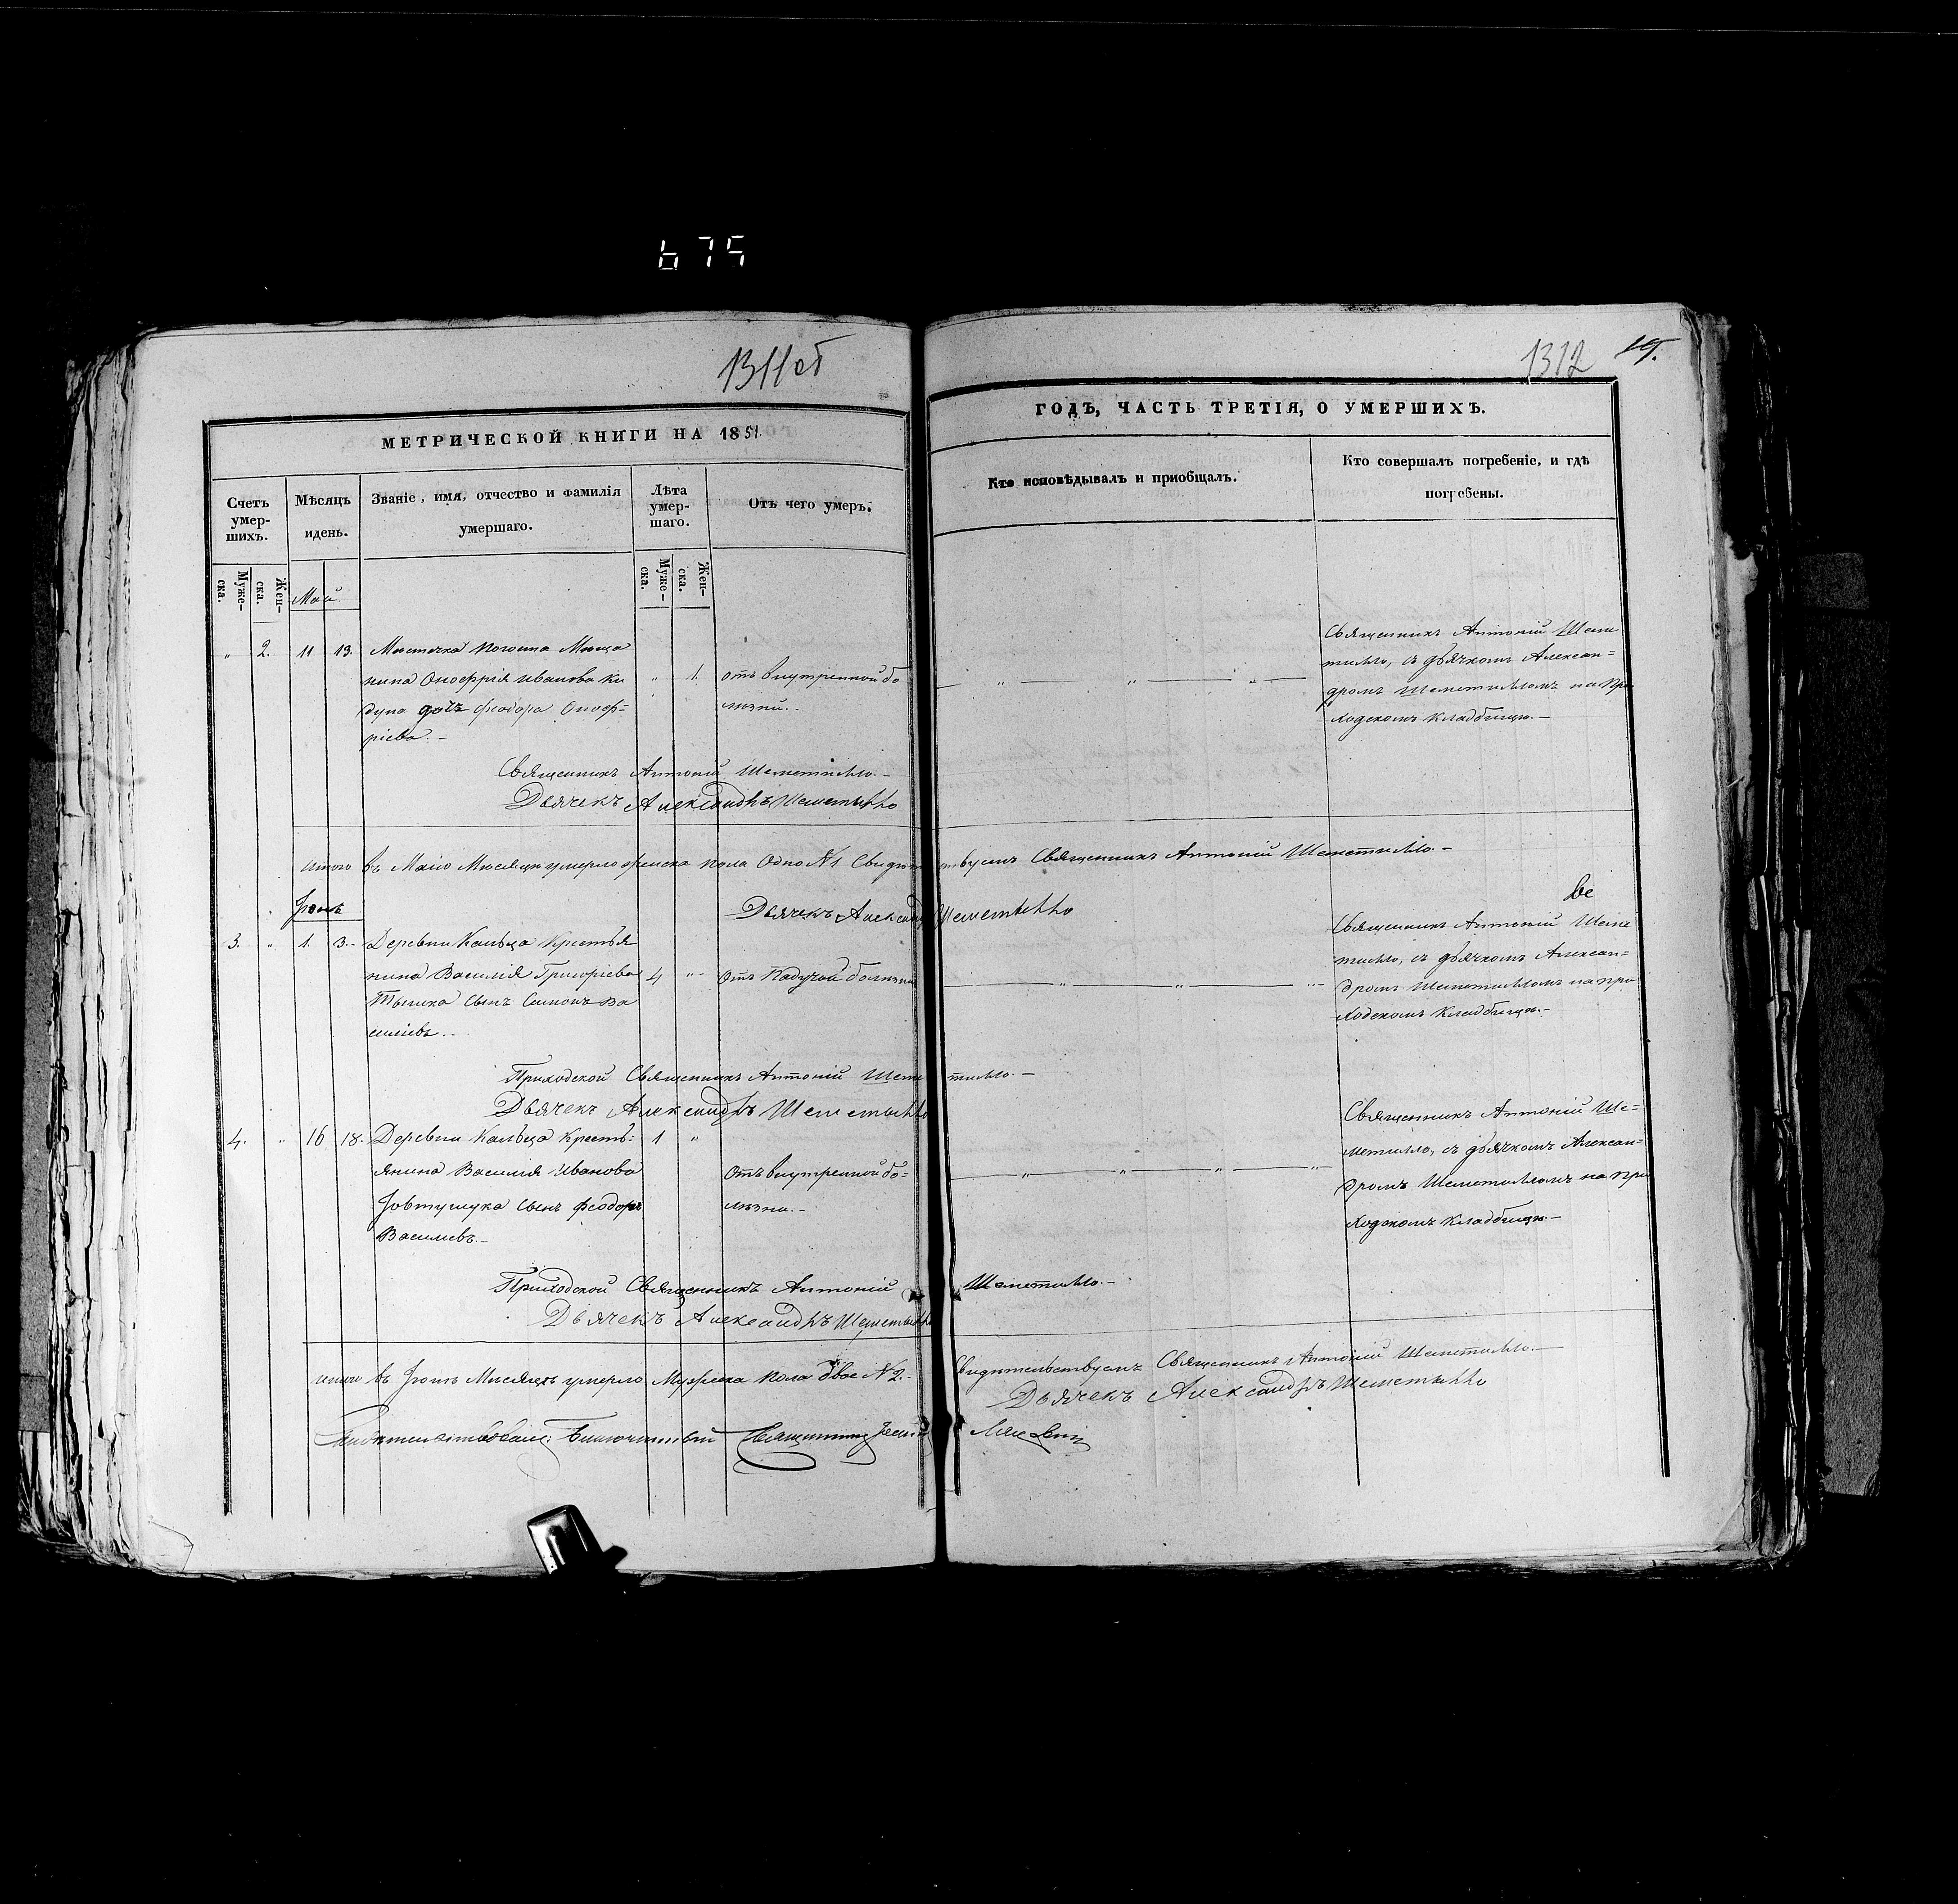 675
1311об
1312
19.
МЕТРИЧЕСКОЙ КНИГИ НА 1851.
ГОДЪ, ЧАСТЬ ТРЕТІЯ, О УМЕРШИХЪ.
Счетъ умер- шихъ.
Мѣсяцъ идень.
Званіе, имя, отчество и фамилія умершаго.
Лѣта умер- шаго.
Отъ чего умеръ.
Кто исповѣдывалъ и приобщалъ.
Кто совершалъ погребеніе, и гдѣ погребены.
Муже- ска.
Жен- ска.
Муже- ска.
Жен- ска.
Май.
" 2. 11 13. Мѣстечка Мѣща
нина Онофрія Иванова Ки
дуна дочь Феодора Оноф=
ріева.-
" 1.
отъ внутренной бо
лѣзни.-
Священникъ Антоній Шеме
тилло, съ дьячкомъ Алексан=
дромъ Шеметилломъ на При
ходскомъ кладбищѣ.-
Священникъ Антоній Шеметилло.-
Дьячекъ Александръ Шеметилло
Итого въ Маію Мѣсяцѣ умерло женска пола Одно №1. Свидѣтельствуемъ Священникъ Антоній Шеметилло.-
Дьячекъ Александръ Шеметилло
Іюнь
3. " 1. 3.- Деревни Кальца Крестья
нина Василія Григоріева
сынъ Симонъ Ва
силіевъ.-
4 "
Отъ Падучой болѣзни
Священникъ Антоній Шеме
тилло, съ дьячкомъ Алексан=
дромъ Шеметилломъ на при
ходскомъ кладбищѣ.-
Приходской Священникъ Антоній Шеметилло.-
Дьячекъ Александръ Шеметилло
4. " 16 18. Деревни Кальца Кресть=
янина Василія Иванова
Іовтушука сынъ Феодоръ
Василіевъ.-
1 "
Отъ внутренной бо=
лѣзни.-
Священникъ Антоній Ше=
метилло, съ дьячкомъ Алексан=
дромъ Шеметилломъ на При
ходскомъ кладбищѣ.-
Приходской Священникъ Антоній Шеметилло.-
Дьячекъ Александръ Шеметилло
Итого въ Іюнь Мѣсяцѣ умерло Мужеска пола двое №2.- Свидѣтельствуемъ Священникъ Антоній Шеметилло.-
Дьячекъ Александръ Шеметилло
Благочинный Священникъ